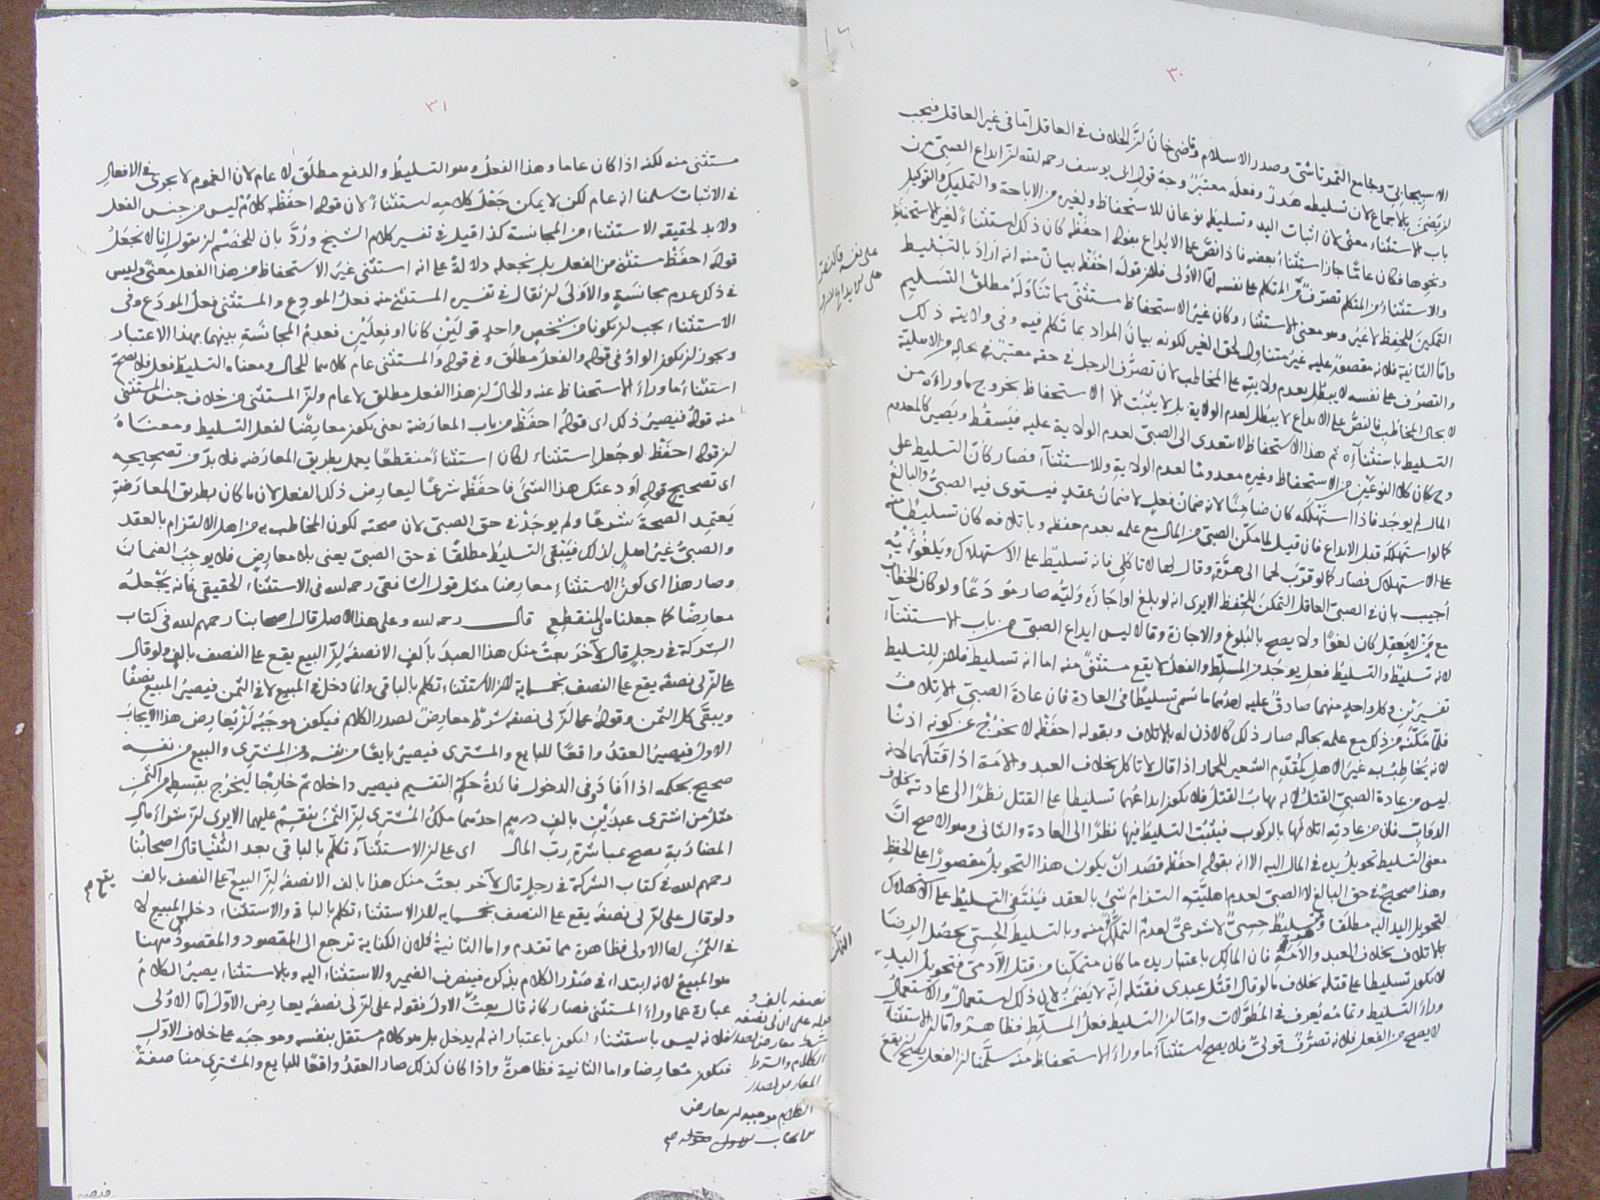 ٣٠
الاسبيجابي وجامع التمرتاشي وصدر الاسلام وقاضي خان ان الخلاف في العاقل اما في غير العاقل فيجب
ان يضمن بالاجماع لان تسليطه هدر وفعله معتبر وجه قول ابي يوسف رحمه الله ان ايداع الصبي من
باب الاستثناء معنى لان اثبات اليد وتسليط نوعان للاستحفاظ ولغيره من الاباحة والتمليك والتوكيل
ونحوها فكان عاما جاز استثناء بعضه فاذا نص على الايداع بقوله احفظه كان ذلك استثناء لغير الاستحفاظ
والاستثناء من المتكلم تصرف من المتكلم على نفسه اما الاولى فلان قوله احفظه بيان منه انه اراد بالتسليط
التمكين للحفظ لا غير وهو معنى الاستثناء وكان غير الاستحفاظ مستثنى مما تناوله مطلق التسليم
واما الثانية فلانه مقصور عليه غير متناول لحق الغير لكونه بيان المراد بما تكلم فيه وفي ولايته ذلك
والتصرف على نفسه لا يبطل بعدم ولايته على المخاطب لان تصرف الرجل في حقه معتبر في حاله من الاهلية
لا بحال المخاطب فالنص على الايداع لا يبطل لعدم الولاية بل لا يثبت الا الاستحفاظ بخروج ما وراءه من
التسليط باستثنائه ثم هذا الاستحفاظ لا يتعدى الى الصبي لعدم الولاية عليه فيسقط ويصير كالمعدوم
وح كان كلا النوعين من الاستحفاظ وغيره معدوما لعدم الولاية وللاستثناء فصار كان التسليط على
المال لم يوجد فاذا استهلكه كان ضامنا لانه ضمان فعل لا ضمان عقد فيستوى فيه الصبي والبالغ
كما لو استهلكه قبل الايداع فان قيل لما مكن الصبي من المال مع علمه بعدم حفظه وباتلافه كان تسليطا منه
على الاستهلاك فصار كما لو قرب لحما الى هرة وقال لها لا تأكلي فانه تسليط على الاستهلاك ويلغو نهيه
اجيب بان في الصبي العاقل التمكن للحفظ الا يرى انه لو بلغ او اجازه وليه صار مودعا ولو كان الخطاب
مع من لا يعقل كان لغوا ولا يصح بالبلوغ والاجازة وقالا ليس ايداع الصبي من باب الاستثناء
لانه تسليط والتسليط فعل يوجد من المسلط والفعل لا يقع مستثنى منه اما انه تسليط فلان للتسليط
تفسيرين وكل واحد منهما صادق عليه احدهما ما سمى تسليطا في العادة فان عادة الصبي الاتلاف
فلما مكنه من ذلك مع علمه بحاله صار ذلك كالاذن له بالاتلاف وبقوله احفظه لا يخرج عن كونه اذنا
لانه يخاطب به غير الاهل كمقدم الشعير للحمار اذا قال لا تاكل بخلاف العبد والامة اذا قتلهما لانه
ليس من عادة الصبي القتل لانه يهاب القتل فلا يكون ايداعهما تسليطا على القتل نظرا الى عادته بخلاف
الدواب فان من عادته اتلافها بالركوب فيثبت التسليط فيها نظرا الى العادة والثاني وهو الاصح ان
معنى التسليط تحويل يده في المال اليه الا انه بقوله احفظه قصد ان يكون هذا التحويل مقصورا على الحفظ
وهذا صحيح في حق البالغ لا الصبي لعدم اهليته التزام شئ بالعقد فينتفى التسليط على الاستهلاك
لتحويل اليد اليه مطلقا وهو تسليط حسي لا شرعي لعدم التملك منه وبالتسليط الحسي يحصل الرضا
بالاتلاف بخلاف العبد والامة فان المالك باعتبار يده ما كان متمكنا من قتل الآدمي فتحويل اليد
لا يكون تسليطا على قتله بخلاف ما لو قال اقتل عبدي فقتله انه لا يضمن لان ذلك استعمال والاستعمال
وراء التسليط وتمامه يعرف في المطولات واما ان التسليط فعل المسلط فظاهر واما ان الاستثناء
لا يصح من الفعل فلانه تصرف قولي فلا يصح استثناء ما وراء الاستحفاظ منه سلمنا ان الفعل يصح ان يقع
٣١
مستثنى منه لكنه اذا كان عاما وهذا الفعل وهو التسليط والدفع مطلق لا عام لان العموم لا يجرى في الافعال
في الاثبات سلمنا انه عام لكن لا يمكن جعل كلامه استثناء لان قوله احفظه كلام ليس من جنس الفعل
ولا بد لحقيقة الاستثناء من المجانسة كذا قيل في تفسير كلام الشيخ ورد بان للخصم ان يقول انا لا نجعل
قوله احفظ مستثنى من الفعل بل نجعله دلالة على انه استثنى غير الاستحفاظ من هذا الفعل معنى وليس
في ذلك عدم مجانسة والاولى ان يقال في تفسيره المستثنى منه فعل المودع والمستثنى فعل المودع وفي
الاستثناء يجب ان يكونا من شخص واحد قولين كانا او فعلين فعدم المجانسة بينهما بهذا الاعتبار
ويجوز ان يكون الواو في قوله والفعل مطلق وفي قوله والمستثنى عام كلاهما للحال ومعناه التسليط فعل فلا يصح
استثناء ما وراء الاستحفاظ عنه والحال ان هذا الفعل مطلق لا عام وان المستثنى من خلاف جنس المستثنى
منه قوله فيصير ذلك اى قوله احفظ من باب المعارضة يعني يكون معارضا لفعل التسليط ومعناه
ان قوله احفظ لو جعل استثناء لكان استثناء منقطعا يعمل بطريق المعارضة فلا بد من تصحيحه
اى تصحيح قوله اودعتك هذا الشئ فاحفظه شرعا ليعارض ذلك الفعل لان ما كان بطريق المعارضة
يعتمد الصحة شرعا ولم يوجد في حق الصبي لان صحته لكون المخاطب به من اهل الالتزام بالعقد
والصبي غير اهل لذلك فيبقى التسليط مطلقا في حق الصبي يعنى بلا معارض فلا يوجب الضمان
وصار هذا اى كون الاستثناء معارضا مثل قول الشافعى رحمه الله في الاستثناء الحقيقى فانه يجعله
معارضا كما جعلناه في المنقطع قال رحمه الله وعلى هذا الاصل قال اصحابنا رحمهم الله في كتاب
الشركة في رجل قال لآخر بعت منك هذا العبد بالف الا نصفه ان البيع يقع على النصف بالف ولو قال
على ان لى نصفه يقع على النصف بخمسماية لان الاستثناء تكلم بالباقى وانما دخل في المبيع لا في الثمن فيصير المبيع نصفا
ويبقى كل الثمن وقوله على ان لى نصفه شرط معارض لصدر الكلام فيكون موجبه ان يعارض هذا الايجاب
الاول فيصير العقد واقعا للبايع والمشترى فيصير بايعا من نفسه ومن المشترى والبيع من نفسه
صحيح بحكمه اذا افاد وفي الدخول فائدة حكم التقسيم فيصير داخلا ثم خارجا ليخرج بقسطه من الثمن
مثل من اشترى عبدين بالف درهم احدهما ملك المشترى ان الثمن ينقسم عليهما الا يرى ان شراء مال
المضاربة يصح بمباشرة رب المال اى على ان الاستثناء تكلم بالباقى بعد الثنيا قال اصحابنا
رحمهم الله في كتاب الشركة في رجل قال لآخر بعت منك هذا بالف الا نصفه ان البيع يقع على النصف بالف
ولو قال على ان لى نصفه يقع على النصف بخمسمايه لان الاستثناء تكلم بالباقى والاستثناء دخل في المبيع لا
في الثمن اما الاولى فظاهرة مما تقدم واما الثانية فلان الكناية ترجع الى المقصود والمقصود ههنا
هو المبيع لانه ابتداء في صدر الكلام بذكره فينصرف الضمير والاستثناء اليه وبالاستثناء يصير الكلام
عبارة عما وراء المستثنى فصار كانه قال بعت الاول فقوله على ان لى نصفه يعارض الاول اما الاولى
فلانه ليس باستثناء ليكون باعتبار انه لم يدخل بل هو كلام مستقل بنفسه وموجبه على خلاف الاول
فيكون معارضا واما الثانية فظاهرة واذا كان كذلك صار العقد واقعا للبايع والمشترى مناصفة
يقع م
نصفه بالف و
قوله على ان لى نصفه
شرط معارض لصدر
الكلام والشرط
المعارض لصدر
الكلام موجبه ان يعارض